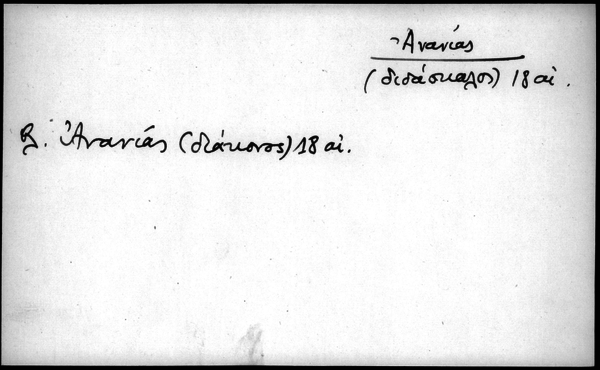 Ἀνανίας
(διδάσκαλος) 18 αἰ.
Β. Ἀνανίας (διάκονος) 18 αἰ.